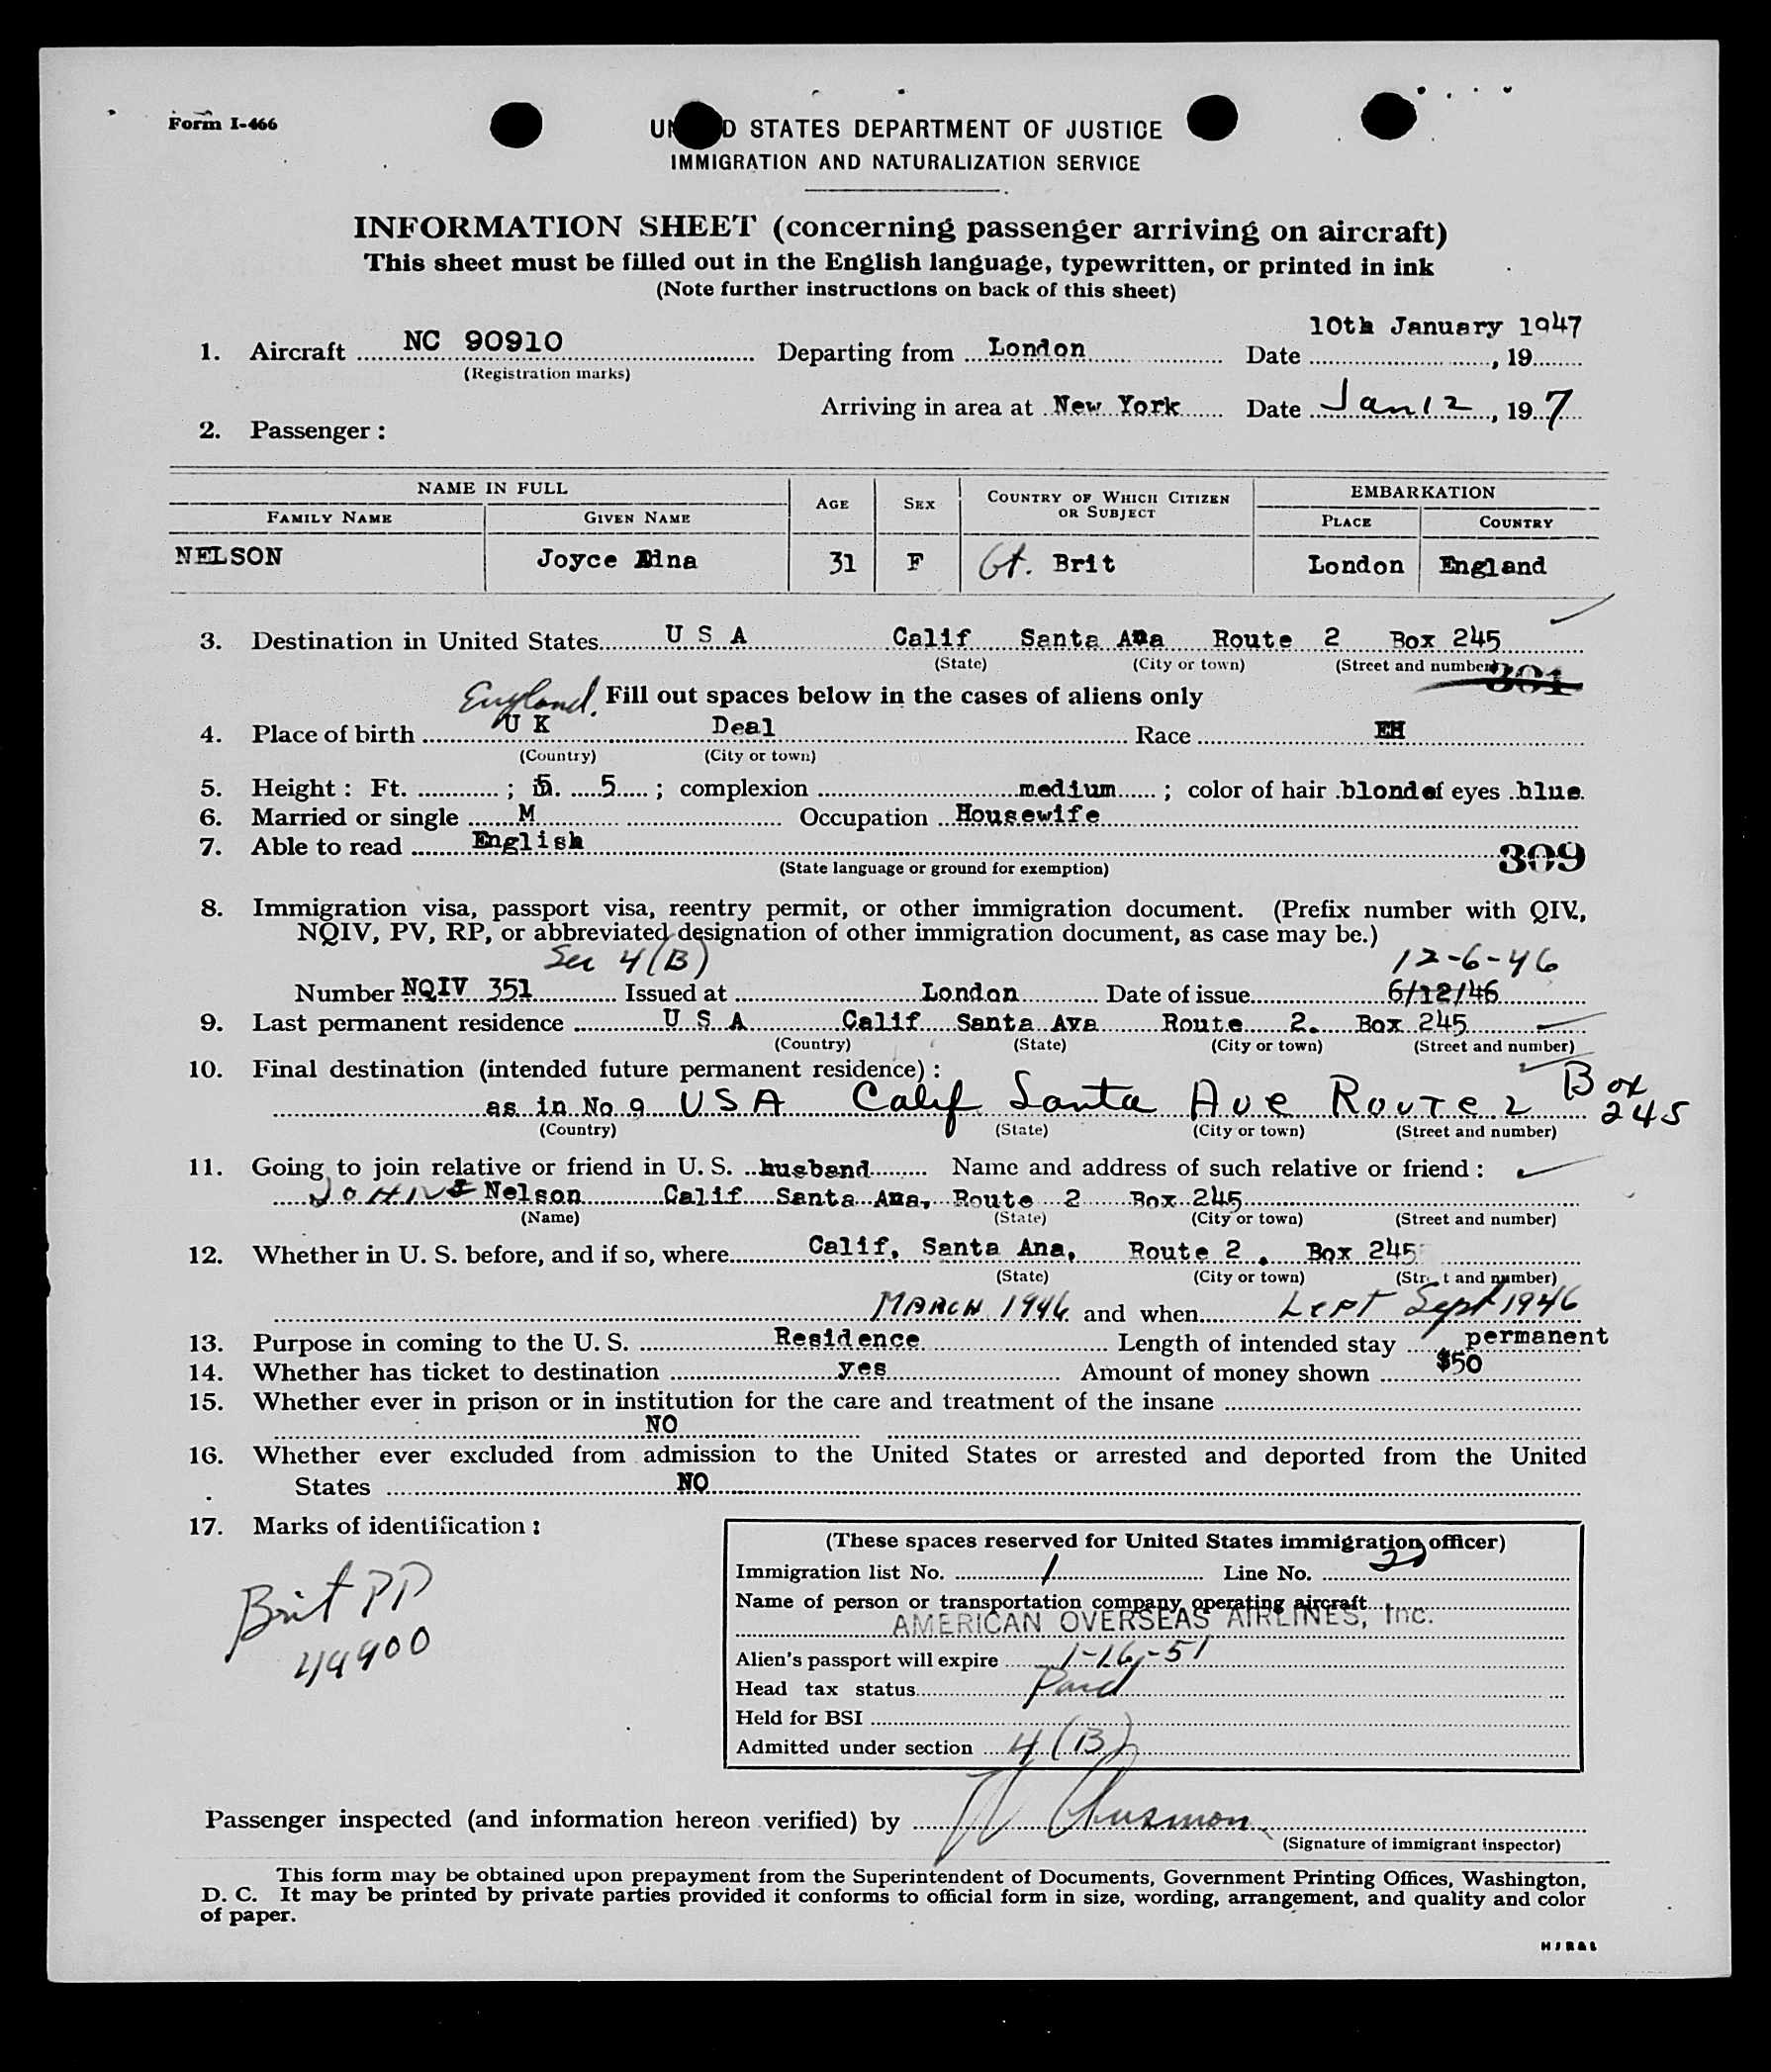 Form I-466
UN D STATES DEPARTMENT OF JUSTICE
IMMIGRATION AND NATURALIZATION SERVICE
INFORMATION SHEET (concerning passenger arriving on aircraft)
This sheet must be filled out in the English language, typewritten, or printed in ink
(Note further instructions on back of this sheet)
10th January 1947
1. Aircraft NC 90910 Departing from London Date , 19
(Registration marks)
Arriving in area at New York Date Jan 12, 19 7
2. Passenger:
NAME IN FULL AGE SEX COUNTRY OF WHICH CITIZEN OR SUBJECT EMBARKATION
FAMILY NAME GIVEN NAME PLACE COUNTRY
NELSON Joyce Edna 31 F Gt. Brit London England
3. Destination in United States U S A Calif Santa Ana Route 2 Box 245
(State) (City or town) (Street and number) 301
England. Fill out spaces below in the cases of aliens only
4. Place of birth U K Deal Race EH
(Country) (City or town)
5. Height: Ft. ; 5. 5 ; complexion medium ; color of hair blond of eyes blue.
6. Married or single M Occupation Housewife
7. Able to read English
(State language or ground for exemption) 309
8. Immigration visa, passport visa, reentry permit, or other immigration document. (Prefix number with QIV,
NQIV, PV, RP, or abbreviated designation of other immigration document, as case may be.)
Sec 4(B) 12-6-46
Number NQIV 351 Issued at London Date of issue 6/12/46
9. Last permanent residence U S A Calif Santa Ava Route 2. Box 245
(Country) (State) (City or town) (Street and number)
10. Final destination (intended future permanent residence):
as in No 9 USA Calif Santa Ave Route 2 Box 245
(Country) (State) (City or town) (Street and number)
11. Going to join relative or friend in U. S. husband Name and address of such relative or friend:
JOHN Nelson Calif Santa Ana, Route 2 Box 245
(Name) (State) (City or town) (Street and number)
12. Whether in U. S. before, and if so, where Calif, Santa Ana, Route 2. Box 245
(State) (City or town) (Str t and number)
MARCH 1946 and when Left Sept 1946
13. Purpose in coming to the U. S. Residence Length of intended stay permanent
14. Whether has ticket to destination yes Amount of money shown $50
15. Whether ever in prison or in institution for the care and treatment of the insane
NO
16. Whether ever excluded from admission to the United States or arrested and deported from the United
States NO
17. Marks of identification:
Brit PP
49900
(These spaces reserved for United States immigration officer)
Immigration list No. 1 Line No. 20
Name of person or transportation company operating aircraft
AMERICAN OVERSEAS AIRLINES, Inc.
Alien's passport will expire 1-16-51
Head tax status Paid
Held for BSI
Admitted under section 4(B)
Passenger inspected (and information hereon verified) by
(Signature of immigrant inspector)
This form may be obtained upon prepayment from the Superintendent of Documents, Government Printing Offices, Washington,
D. C. It may be printed by private parties provided it conforms to official form in size, wording, arrangement, and quality and color
of paper.